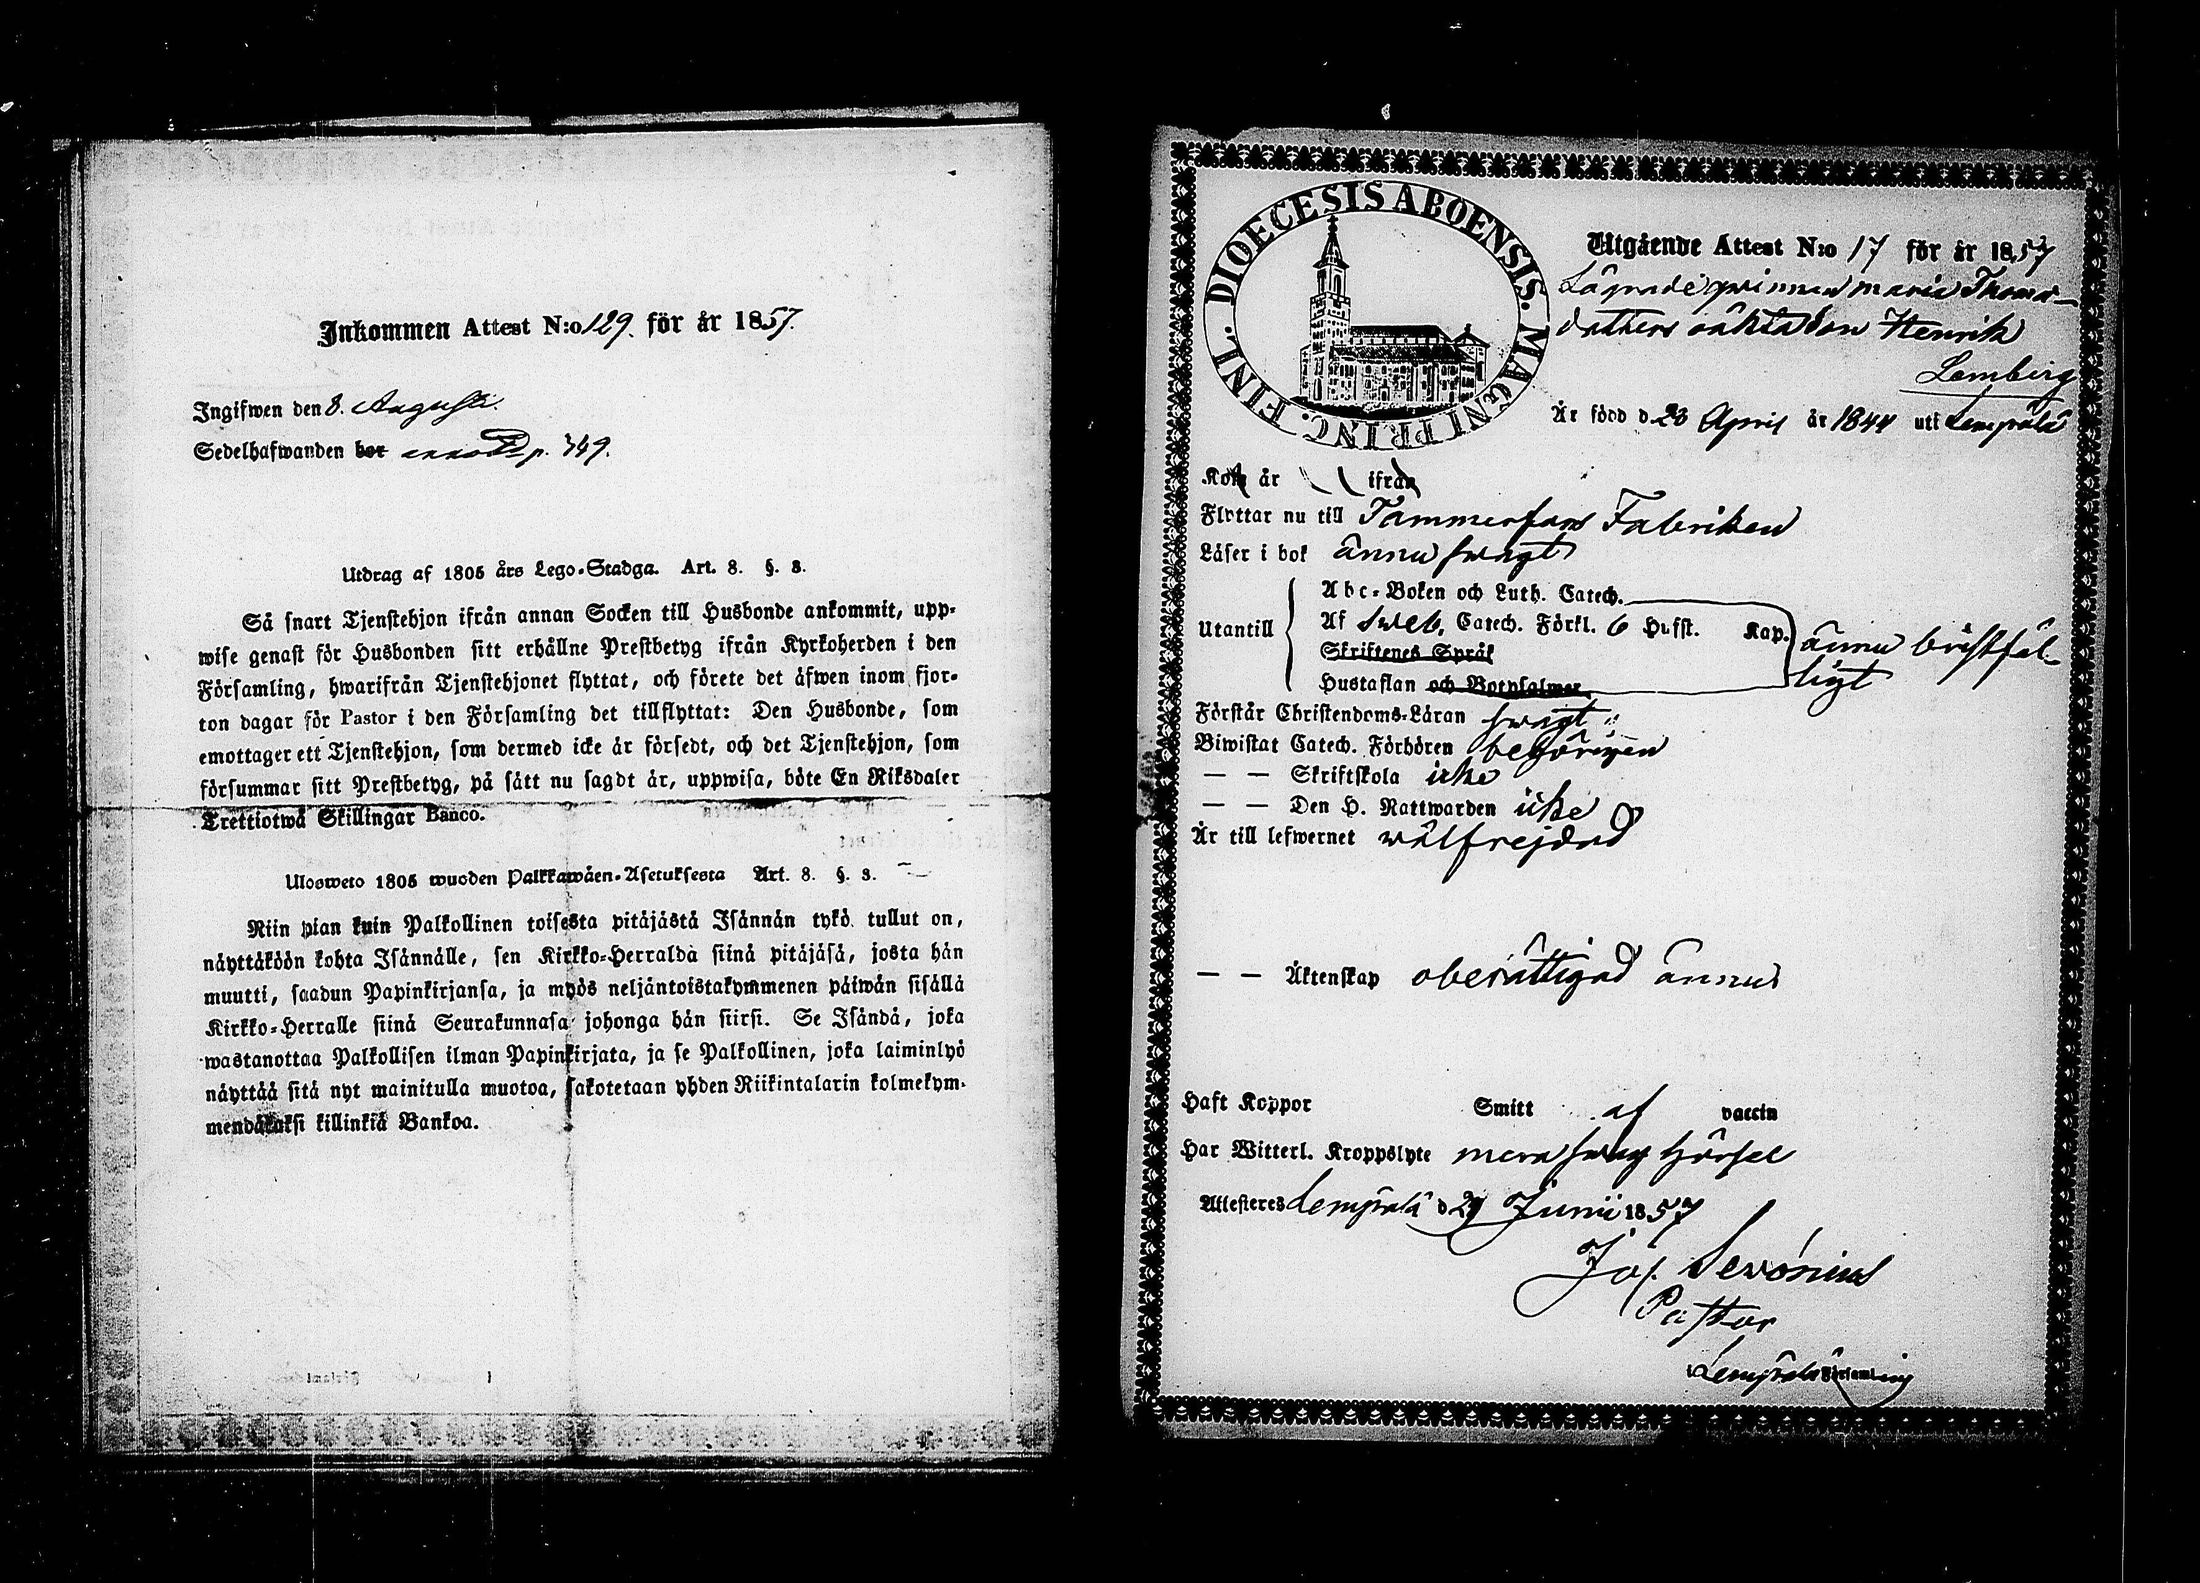 Inkommen Attest N:o 129. för år 1857.
Ingifwen den 8. Augusti.
Sedelhafwanden bor p. 349.
Utdrag af 1805 års Lego-Stadga. Art. 8. §. 3.
Så snart Tjenstehjon ifrån annan Socken till Husbonde ankommit, upp-
wise genast för Husbonden sitt erhållne Prestbetyg ifrån Kyrkoherden i den
Församling, hwarifrån Tjenstehjonet flyttat, och förete det äfwen inom fjor-
ton dagar för Pastor i den Församling det tillflyttat: Den Husbonde, som
emottager ett Tjenstehjon, som dermed icke är försedt, och det Tjenstehjon, som
försummar sitt Prestbetyg, på sätt nu sagdt är, uppwisa, böte En Riksdaler
Trettiotwå Skillingar Banco.
Ulosweto 1805 wuoden Palkkawäen-Asetuksesta Art. 8. §. 3.
Niin pian kuin Palkollinen toisesta pitäjästä Isännän tykö tullut on,
näyttäköön kohta Isännälle, sen Kirkko-Herralda siinä pitäjäsä, josta hän
muutti, saadun Papinkirjansa, ja myös neljäntoistakymmenen päiwän sisällä
Kirkko-Herralle siinä Seurakunnasa johonga hän siirsi. Se Isändä, joka
wastanottaa Palkollisen ilman Papinkirjata, ja se Palkollinen, joka laiminlyö
näyttää sitä nyt mainitulla muotoa, sakotetaan yhden Riikintalarin kolmekym-
mendäkaksi killinkiä Bankoa.
DIOECESIS ABOENSIS. MAGNI PRINC. FINL.
Utgående Attest N:o 17 för år 1857
Lägredeqwinnan Maria Thomas-
dotters oäkta Son Henrik
Lemberg
Är född d. 23 April år 1844 uti Lempälä
Kom år ifrån
Flyttar nu till Tammerfors Fabriken
Läser i bok ännu swagt
Utantill
Abc-Boken och Luth. Catech.
Af Sweb. Catech. Förkl. 6 Hufst. Kap.
Skriftenes Språk
Hustaflan och Botpsalmer
ännu bristfäl-
ligt
Förstår Christendoms-Läran swagt
Biwistat Catech. Förhören behörigen
— — Skriftskola icke
— — Den H. Nattwarden icke
Är till lefwernet wälfrejdad
— — Äktenskap oberättigad ännu
Haft Koppor Smitt af vaccin
Har Witterl. Kroppslyte swag hörsel
Attesteres Lempälä d. 29 Junii 1857
Jos. Sevónius
Pastor
Lempälä Församling